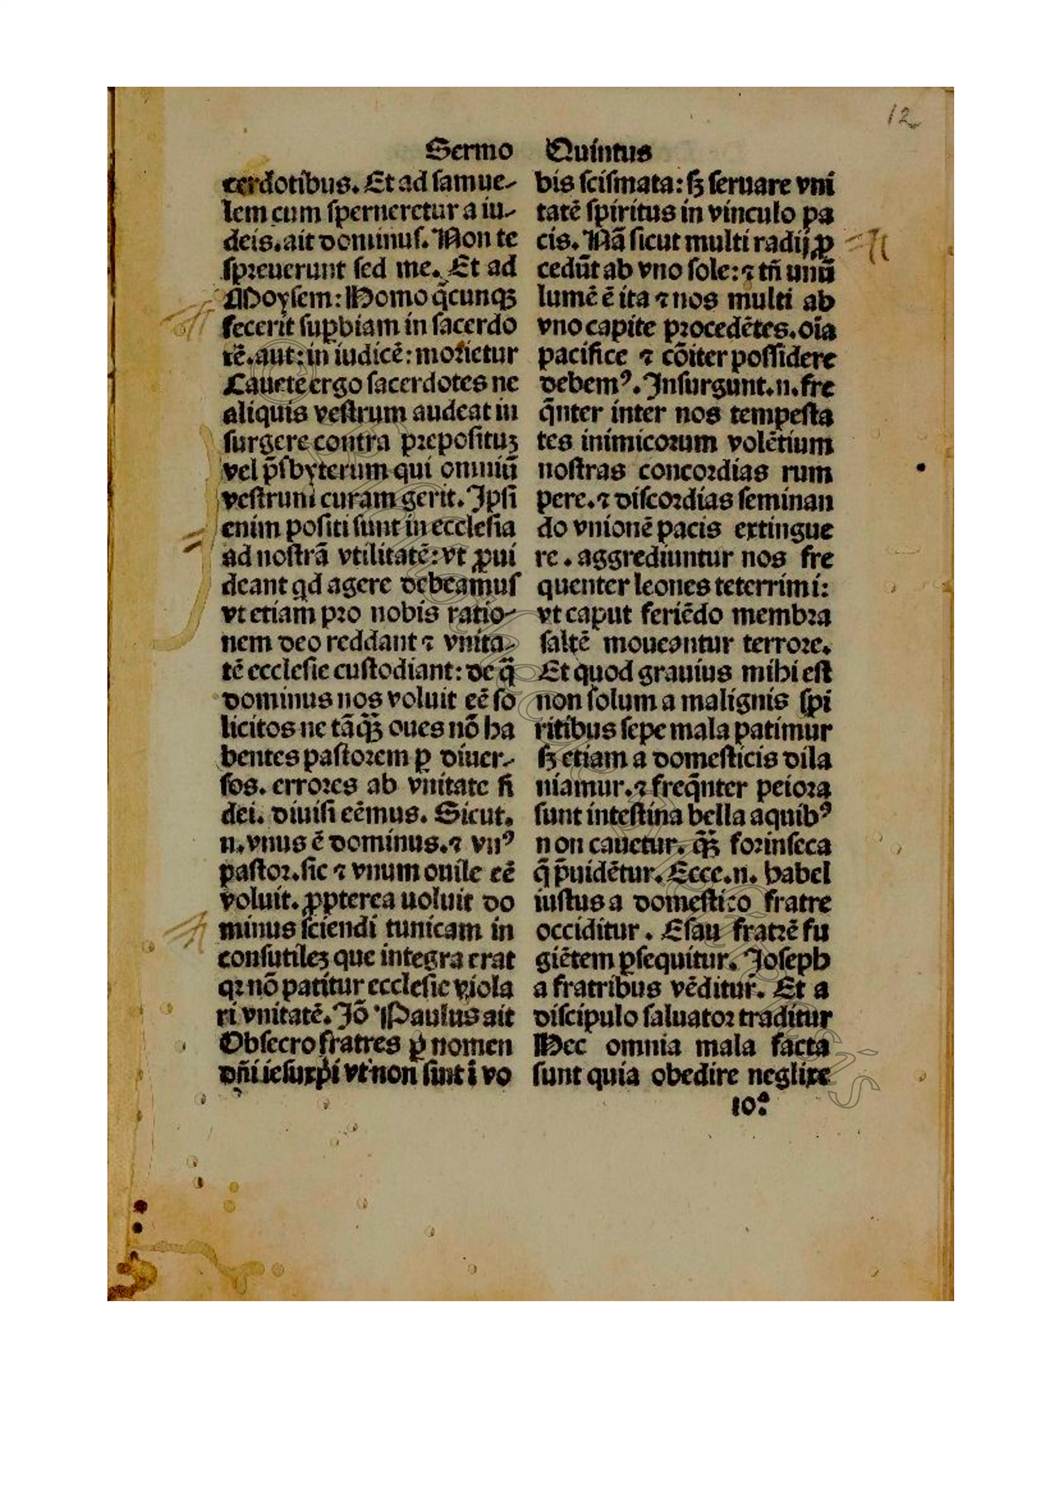 12
Sermo Quintus
cerdotibus. Et ad samue-
lem cum sperneretur a iu-
deis. ait dominus. Non te
spreuerunt sed me. Et ad
Moysem: Homo q̄cunqꝫ
fecerit suꝑbiam in sacerdo
tē. aut: in iudicē: morietur
Cauete ergo sacerdotes ne
aliquis vestrum audeat in
surgere contra preposituꝫ
vel p̄sbyterum qui omniū
vestrum curam gerit. Ipsi
enim positi sunt in ecclesia
ad nostrā vtilitatē: vt ꝓui
deant qd agere debeamus
vt etiam pro nobis ratio-
nem deo reddant ⁊ vnita-
tē ecclesie custodiant: de q̄
dominus nos voluit eē so
licitos ne tāqꝫ oues nō ha
bentes pastorem ꝑ diuer-
sos. errores ab vnitate fi
dei. diuisi eēmus. Sicut.
n. vnus ē dominus. ⁊ vnꝰ
pastor. sic ⁊ vnum ouile eē
voluit. ꝓpterea uoluit do
minus sciendi tunicam in
consutileꝫ que integra erat
qꝛ nō patitur ecclesie viola
ri vnitatē. Iō Paulus ait
Obsecro fratres ꝑ nomen
dn̄i iesu xp̄i vt non sint ī vo
bis scismata: sꝫ seruare vni
tatē spiritus in vinculo pa
cis. Nā sicut multi radij ꝓ
cedūt ab vno sole: ⁊ tn̄ unū
lumē ē ita ⁊ nos multi ab
vno capite procedētes. oīa
pacifice ⁊ cōiter possidere
debemꝰ. Insurgunt. n. fre
q̄nter inter nos tempesta
tes inimicorum volētium
nostras concordias rum
pere. ⁊ discordias seminan
do vnionē pacis extingue
re. aggrediuntur nos fre
quenter leones teterrimi:
vt caput feriēdo membra
saltē moueantur terrore.
Et quod grauius mihi est
non solum a malignis spi
ritibus sepe mala patimur
sꝫ etiam a domesticis dila
niamur. ⁊ freq̄nter peiora
sunt intestina bella a quibꝰ
non cauetur. qꝫ forinseca
q̄ p̄uidētur. Ecce. n. habel
iustus a domestico fratre
occiditur. Esau fratrē fu
giētem ꝑsequitur. Ioseph
a fratribus vēditur. Et a
discipulo saluator traditur
Hec omnia mala facta
sunt quia obedire neglixe